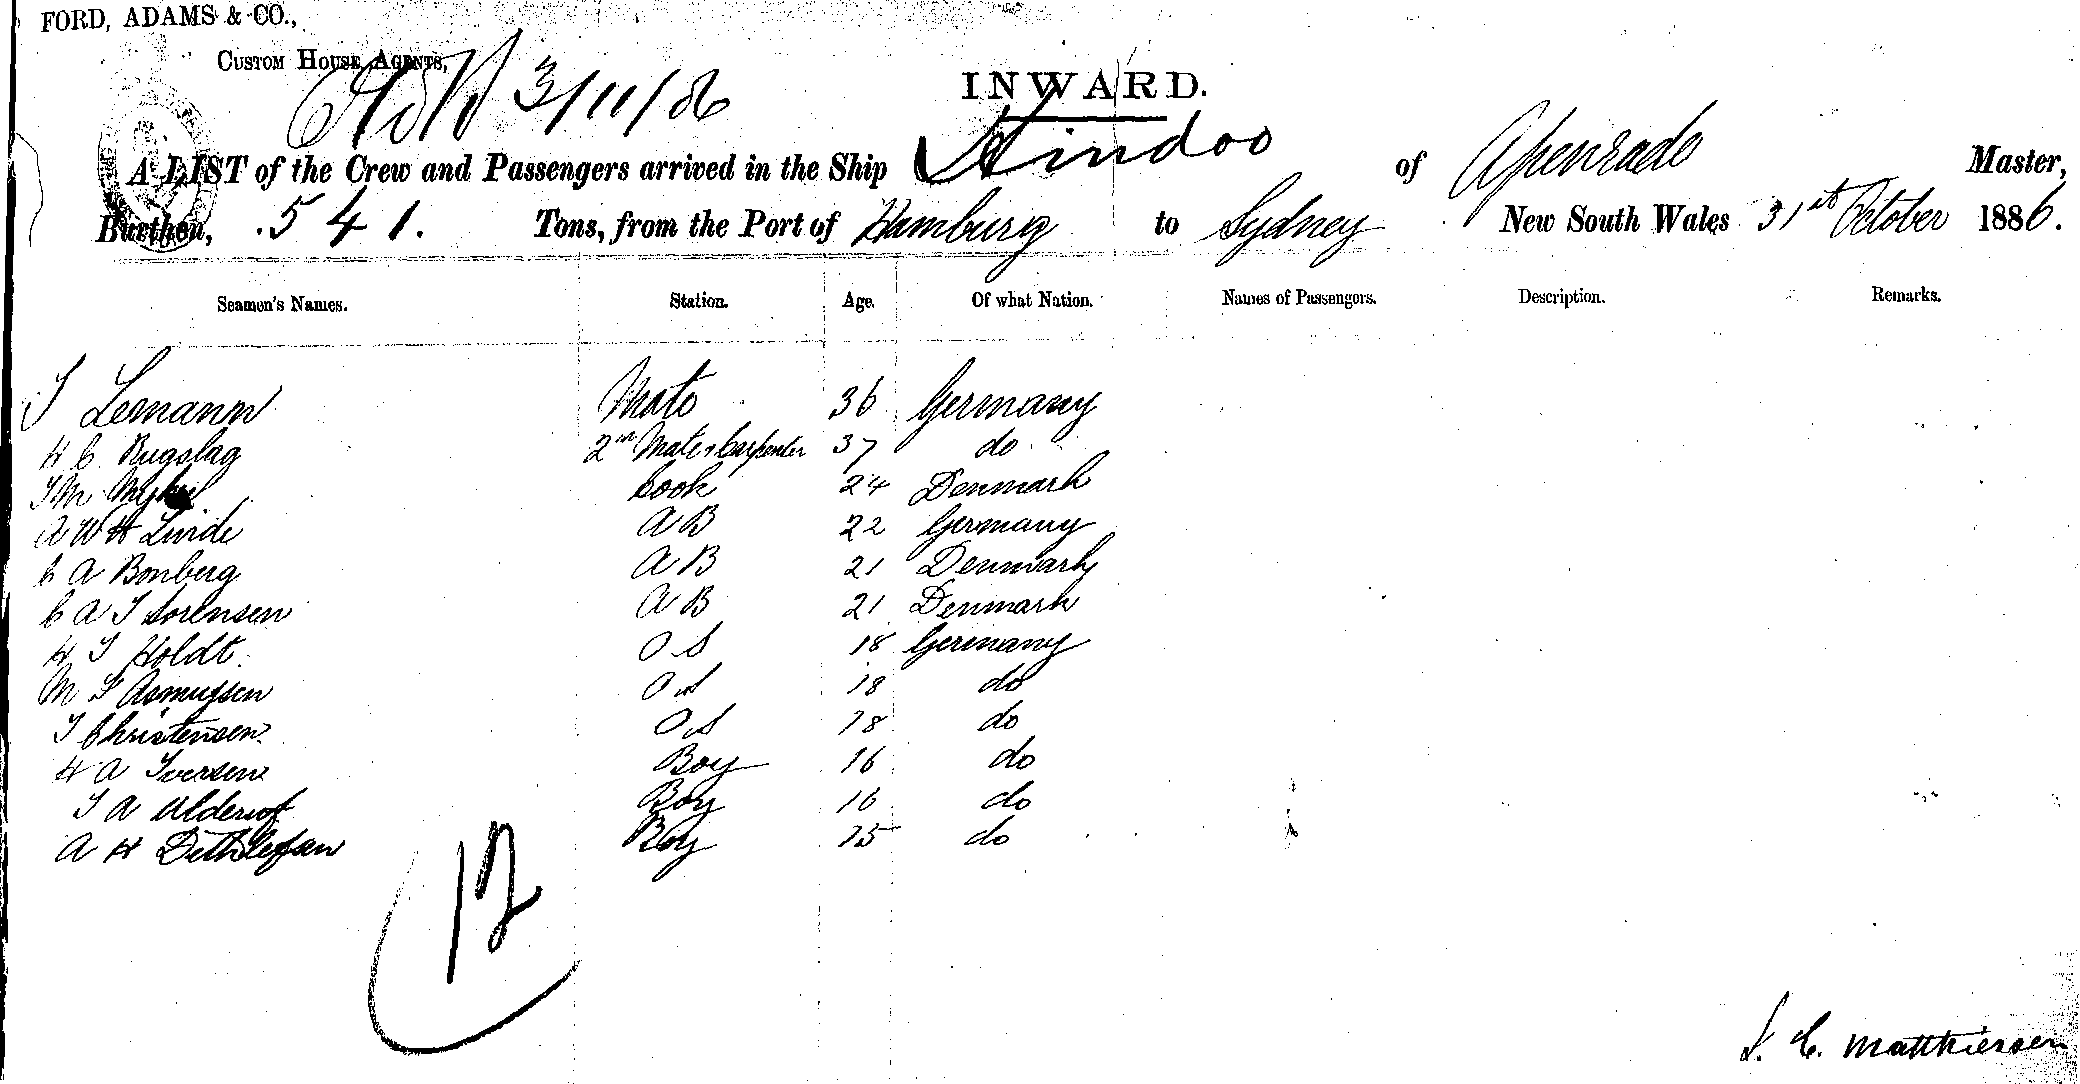 FORD, ADAMS & CO.,
CUSTOM HOUSE AGENTS,
3/11/86
INWARD.
A LIST of the Crew and Passengers arrived in the Ship Hindoo of Apenrade Master,
Burthen, 541. Tons, from the Port of Hamburg to Sydney New South Wales 31st October 1886.
Seamen's Names. Station. Age. Of what Nation. Names of Passengers. Description. Remarks.
J Lemann Mate 36 Germany
H C Rugslag 2nd Mate & Carpenter 37 do
J M Cook 24 Denmark
A W H Linde A B 22 Germany
C A Bonberg A B 21 Denmark
C A J Sorensen A B 21 Denmark
H J Holdt. O S 18 Germany
M J Asmussen O S 18 do
J Christensen O S 18 do
H A Iversen Boy 16 do
J A Boy 16 do
A H Dethlefsen Boy 15 do
12
J. C. Matthiessen